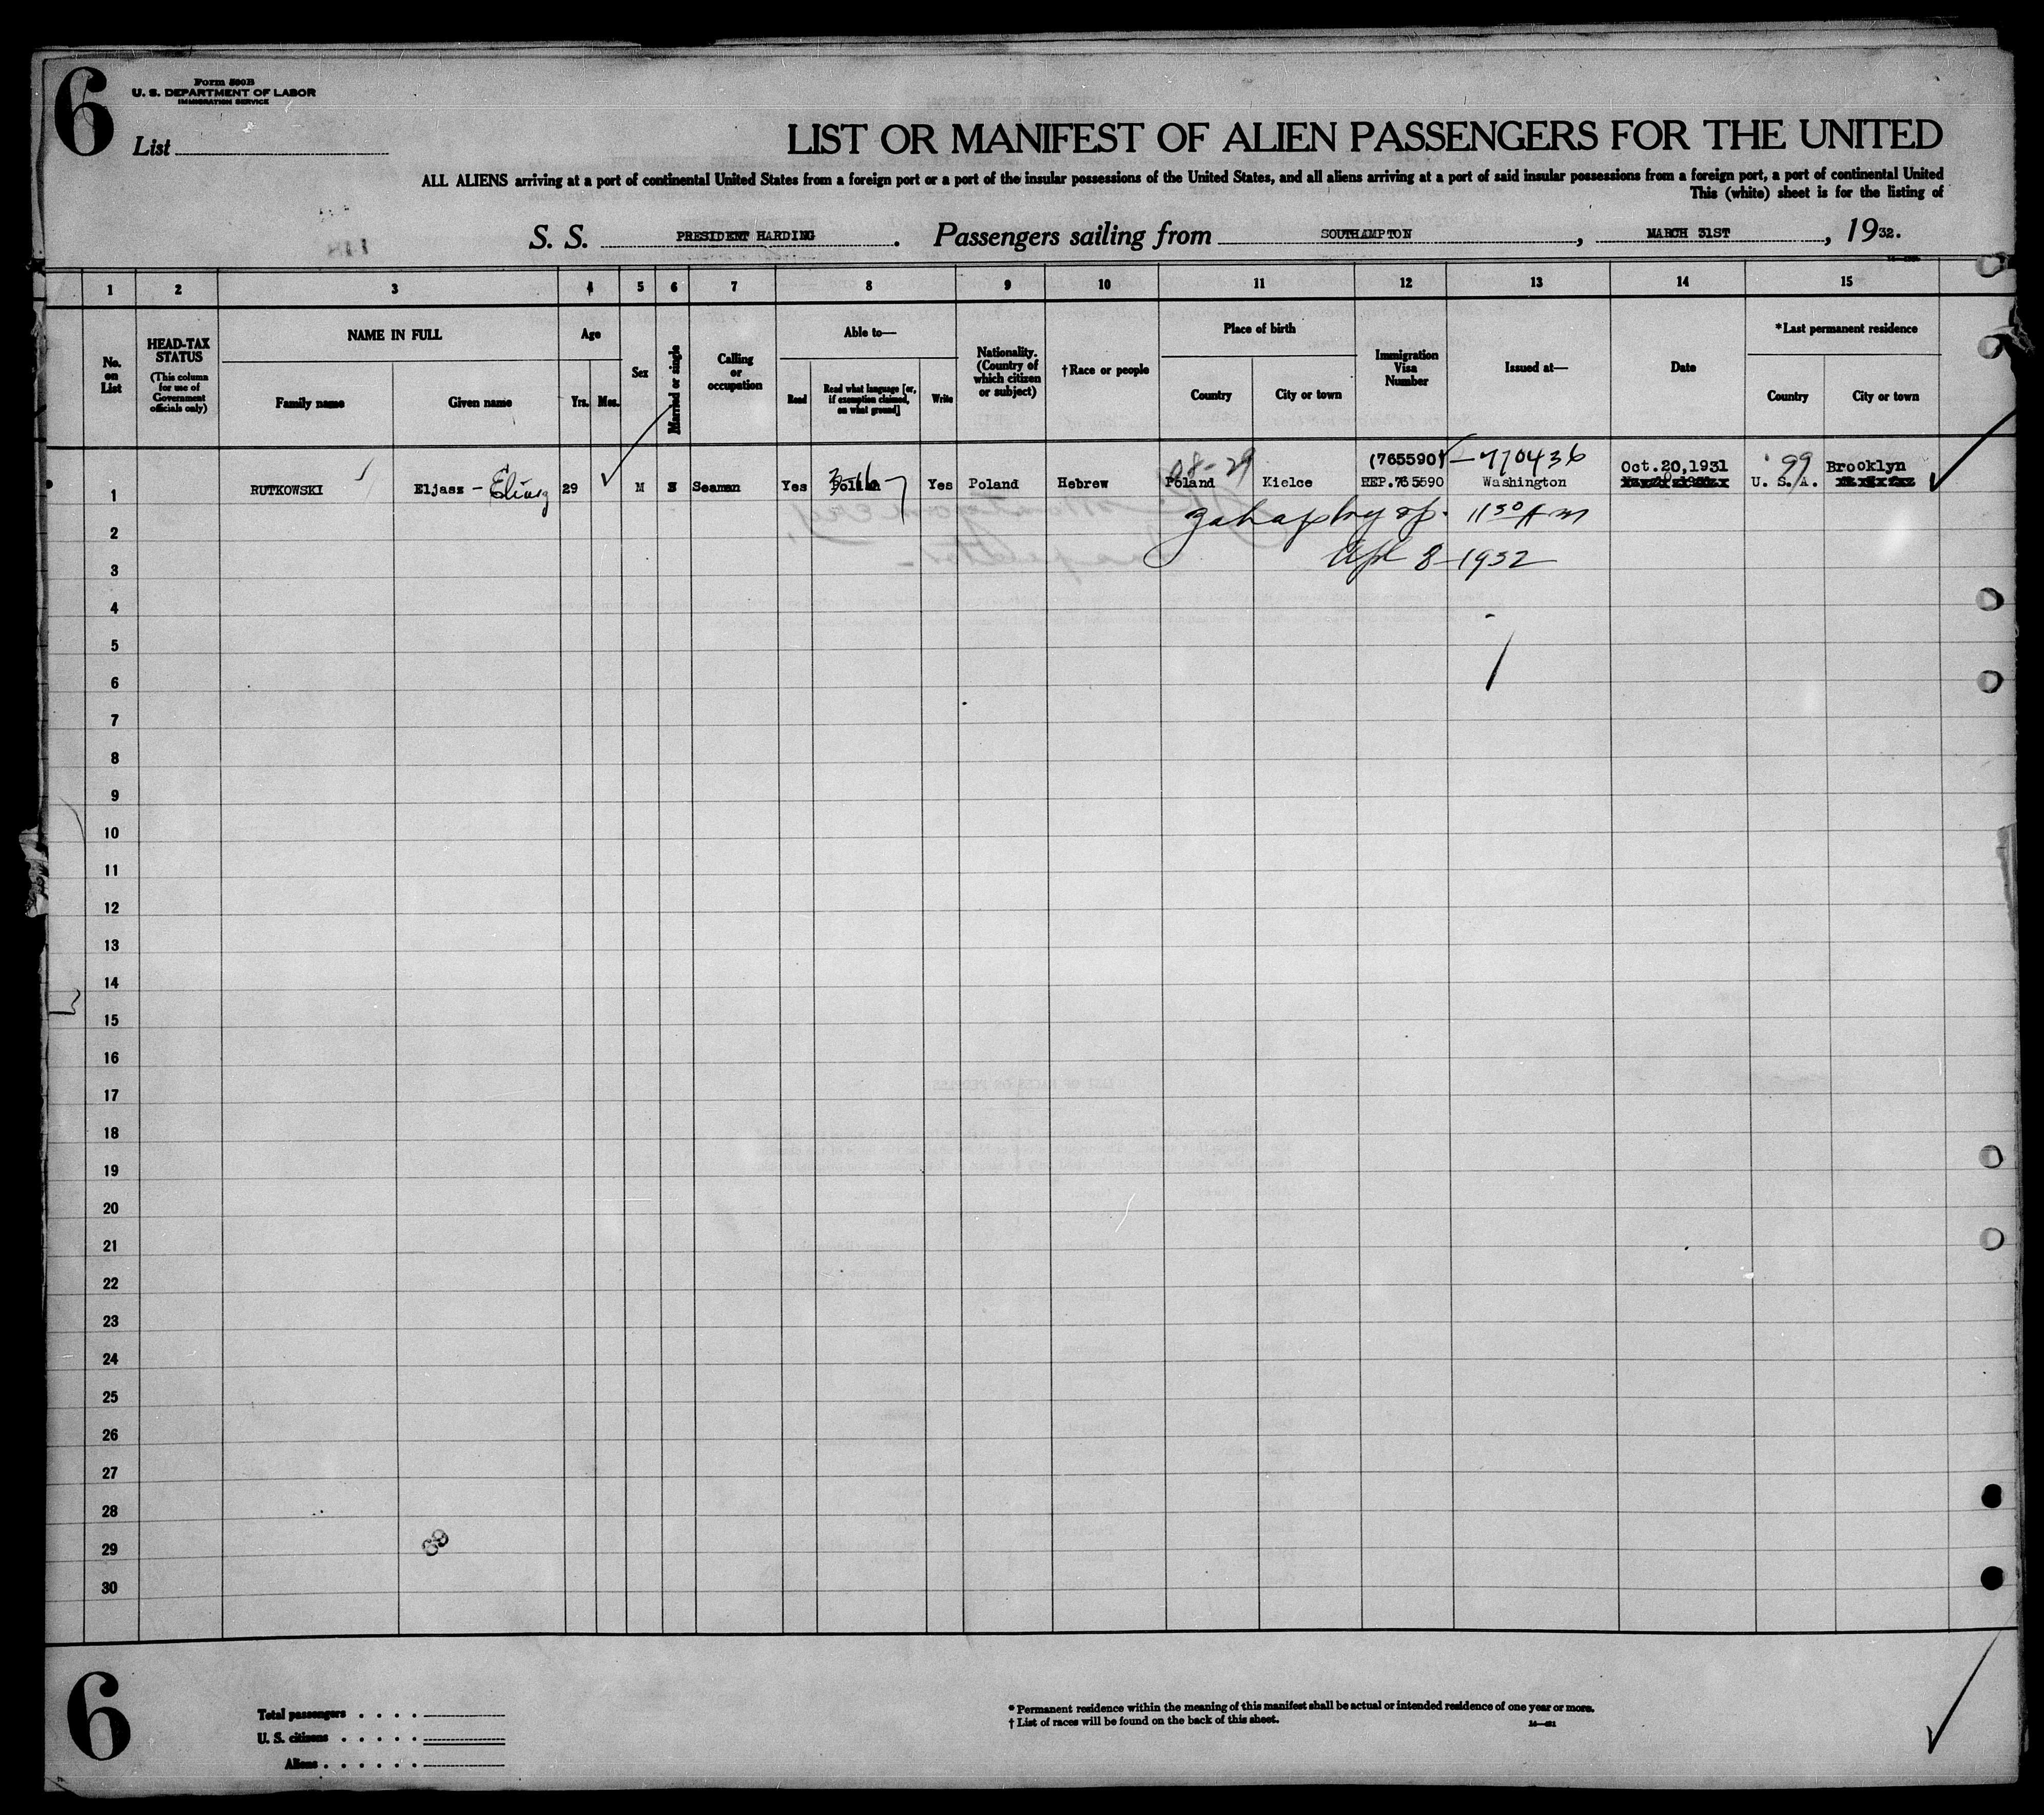 6
Form 500B
U. S. DEPARTMENT OF LABOR
IMMIGRATION SERVICE
List
LIST OR MANIFEST OF ALIEN PASSENGERS FOR THE UNITED
ALL ALIENS arriving at a port of continental United States from a foreign port or a port of the insular possessions of the United States, and all aliens arriving at a port of said insular possessions from a foreign port, a port of continental United
This (white) sheet is for the listing of
S. S. PRESIDENT HARDING. Passengers sailing from SOUTHAMPTON, MARCH 31ST, 1932.
1 2 3 4 5 6 7 8 9 10 11 12 13 14 15
No. on List
HEAD-TAX STATUS
(This column for use of Government officials only)
NAME IN FULL
Family name
Given name
Age
Yrs.
Mos.
Sex
Married or single
Calling or occupation
Able to—
Read
Read what language [or, if exemption claimed, on what ground]
Write
Nationality. (Country of which citizen or subject)
†Race or people
Place of birth
Country
City or town
Immigration Visa Number
Issued at—
Date
*Last permanent residence
Country
City or town
(765590) — 770436
Oct.20,1931
99
Brooklyn
1 RUTKOWSKI Eljasz - 29 M S Seaman Yes Polish Yes Poland Hebrew Poland Kielce REP.765590 Washington U. S. A.
2 11 30 AM
3 Apl 8 - 1932
4
5
6
7
8
9
10
11
12
13
14
15
16
17
18
19
20
21
22
23
24
25
26
27
28
29
30
69
6
Total passengers
U. S. citizens
Aliens
* Permanent residence within the meaning of this manifest shall be actual or intended residence of one year or more.
† List of races will be found on the back of this sheet.
14—421